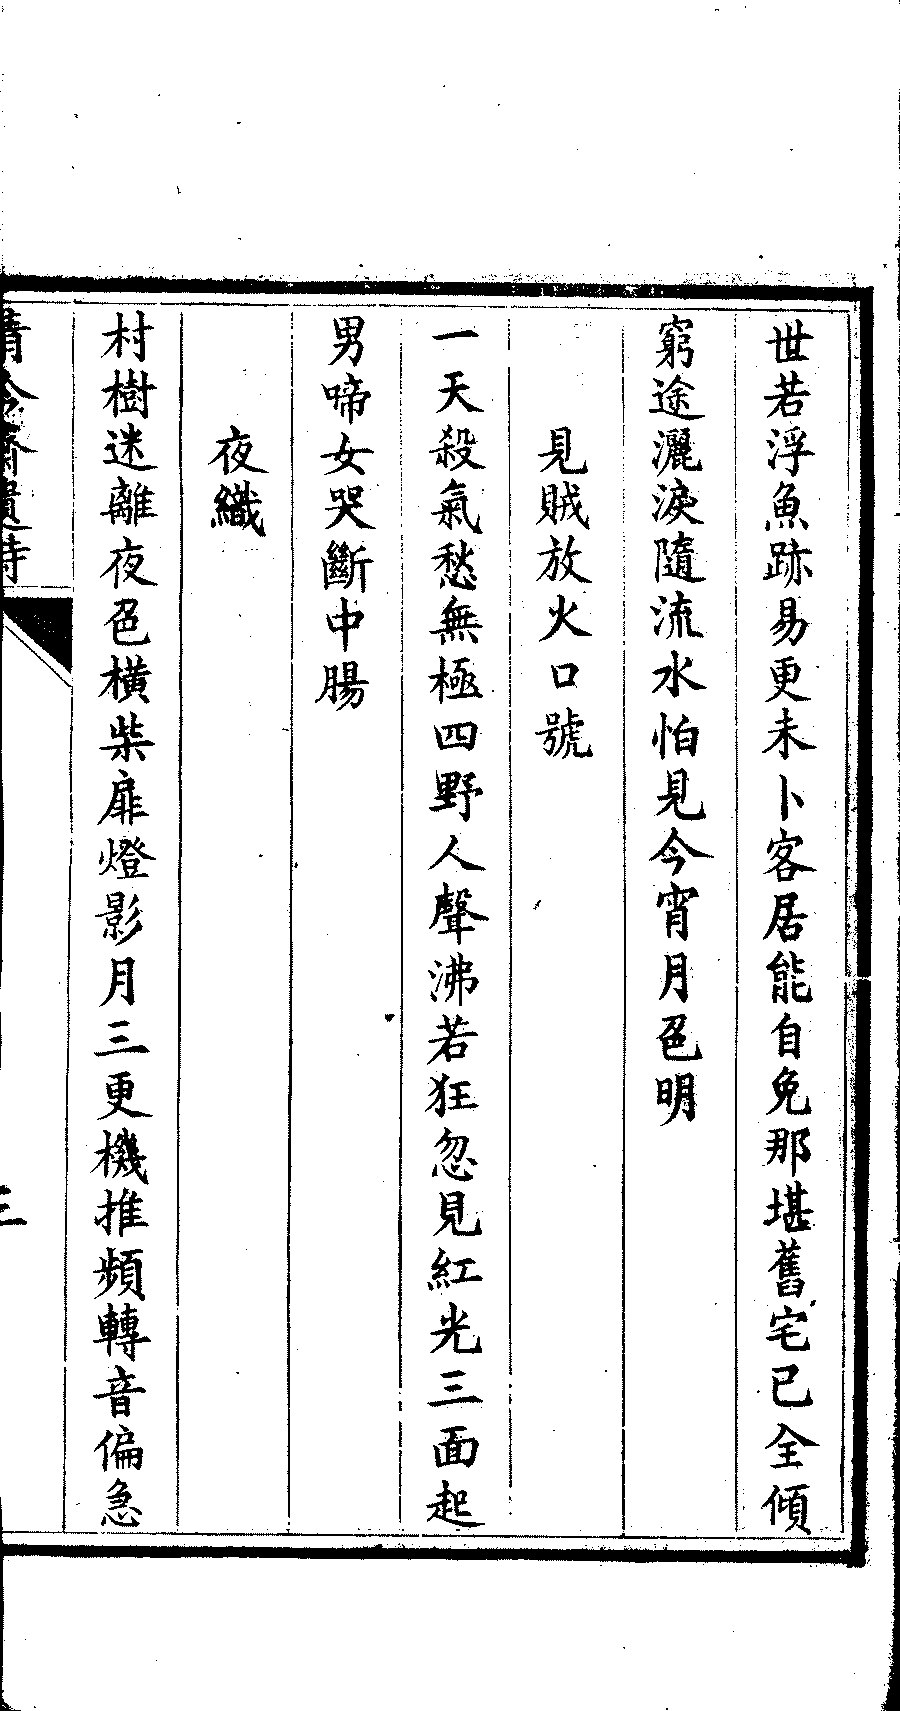 世若浮魚跡易更未卜客居能自免那堪舊宅已全傾
窮途灑淚隨流水怕見今宵月色明
見賊放火口號
一天殺氣愁無極四野人聲沸若狂忽見紅光三面起
男啼女哭斷中腸
夜織
村樹迷離夜色橫柴扉燈影月三更機推頻轉音偏急
三